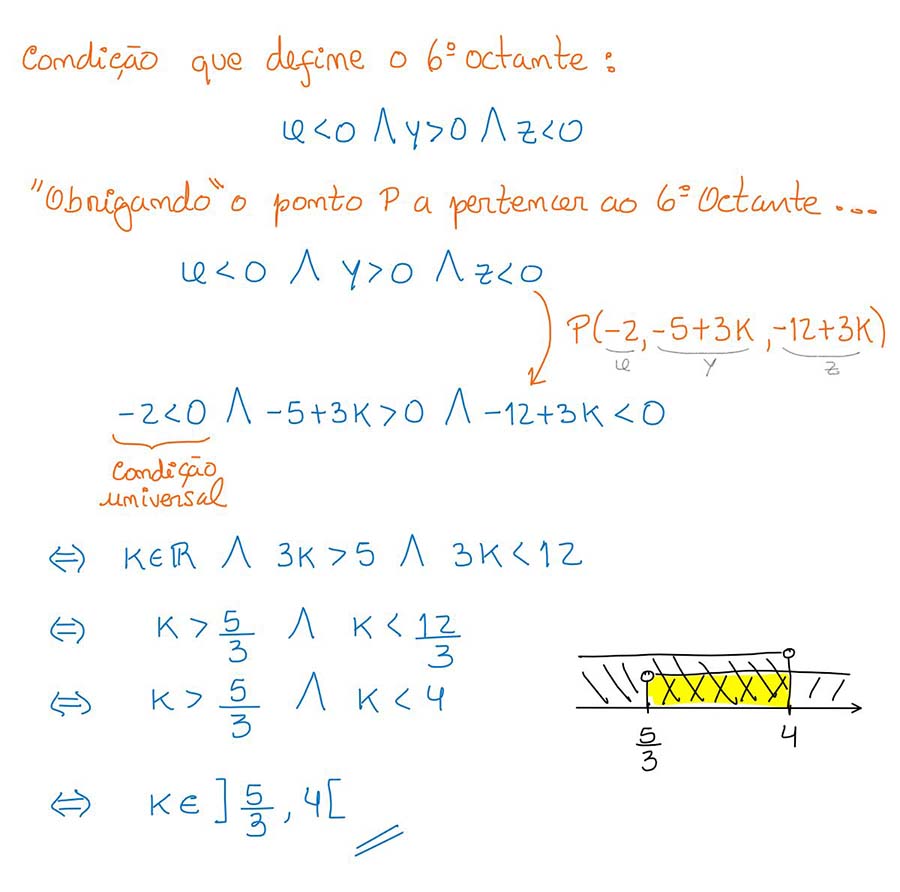 Condição que define o 6º octante :
x<0 ∧ y>0 ∧ z<0
"Obrigando" o ponto P a pertencer ao 6º Octante ...
x<0 ∧ y>0 ∧ z<0
P(-2, -5+3K, -12+3K)
x y z
-2<0 ∧ -5+3K>0 ∧ -12+3K<0
Condição
universal
⇔ K∈ℝ ∧ 3K>5 ∧ 3K<12
⇔ K > 5/3 ∧ K < 12/3
⇔ K > 5/3 ∧ K < 4
5/3 4
⇔ K ∈ ]5/3, 4[